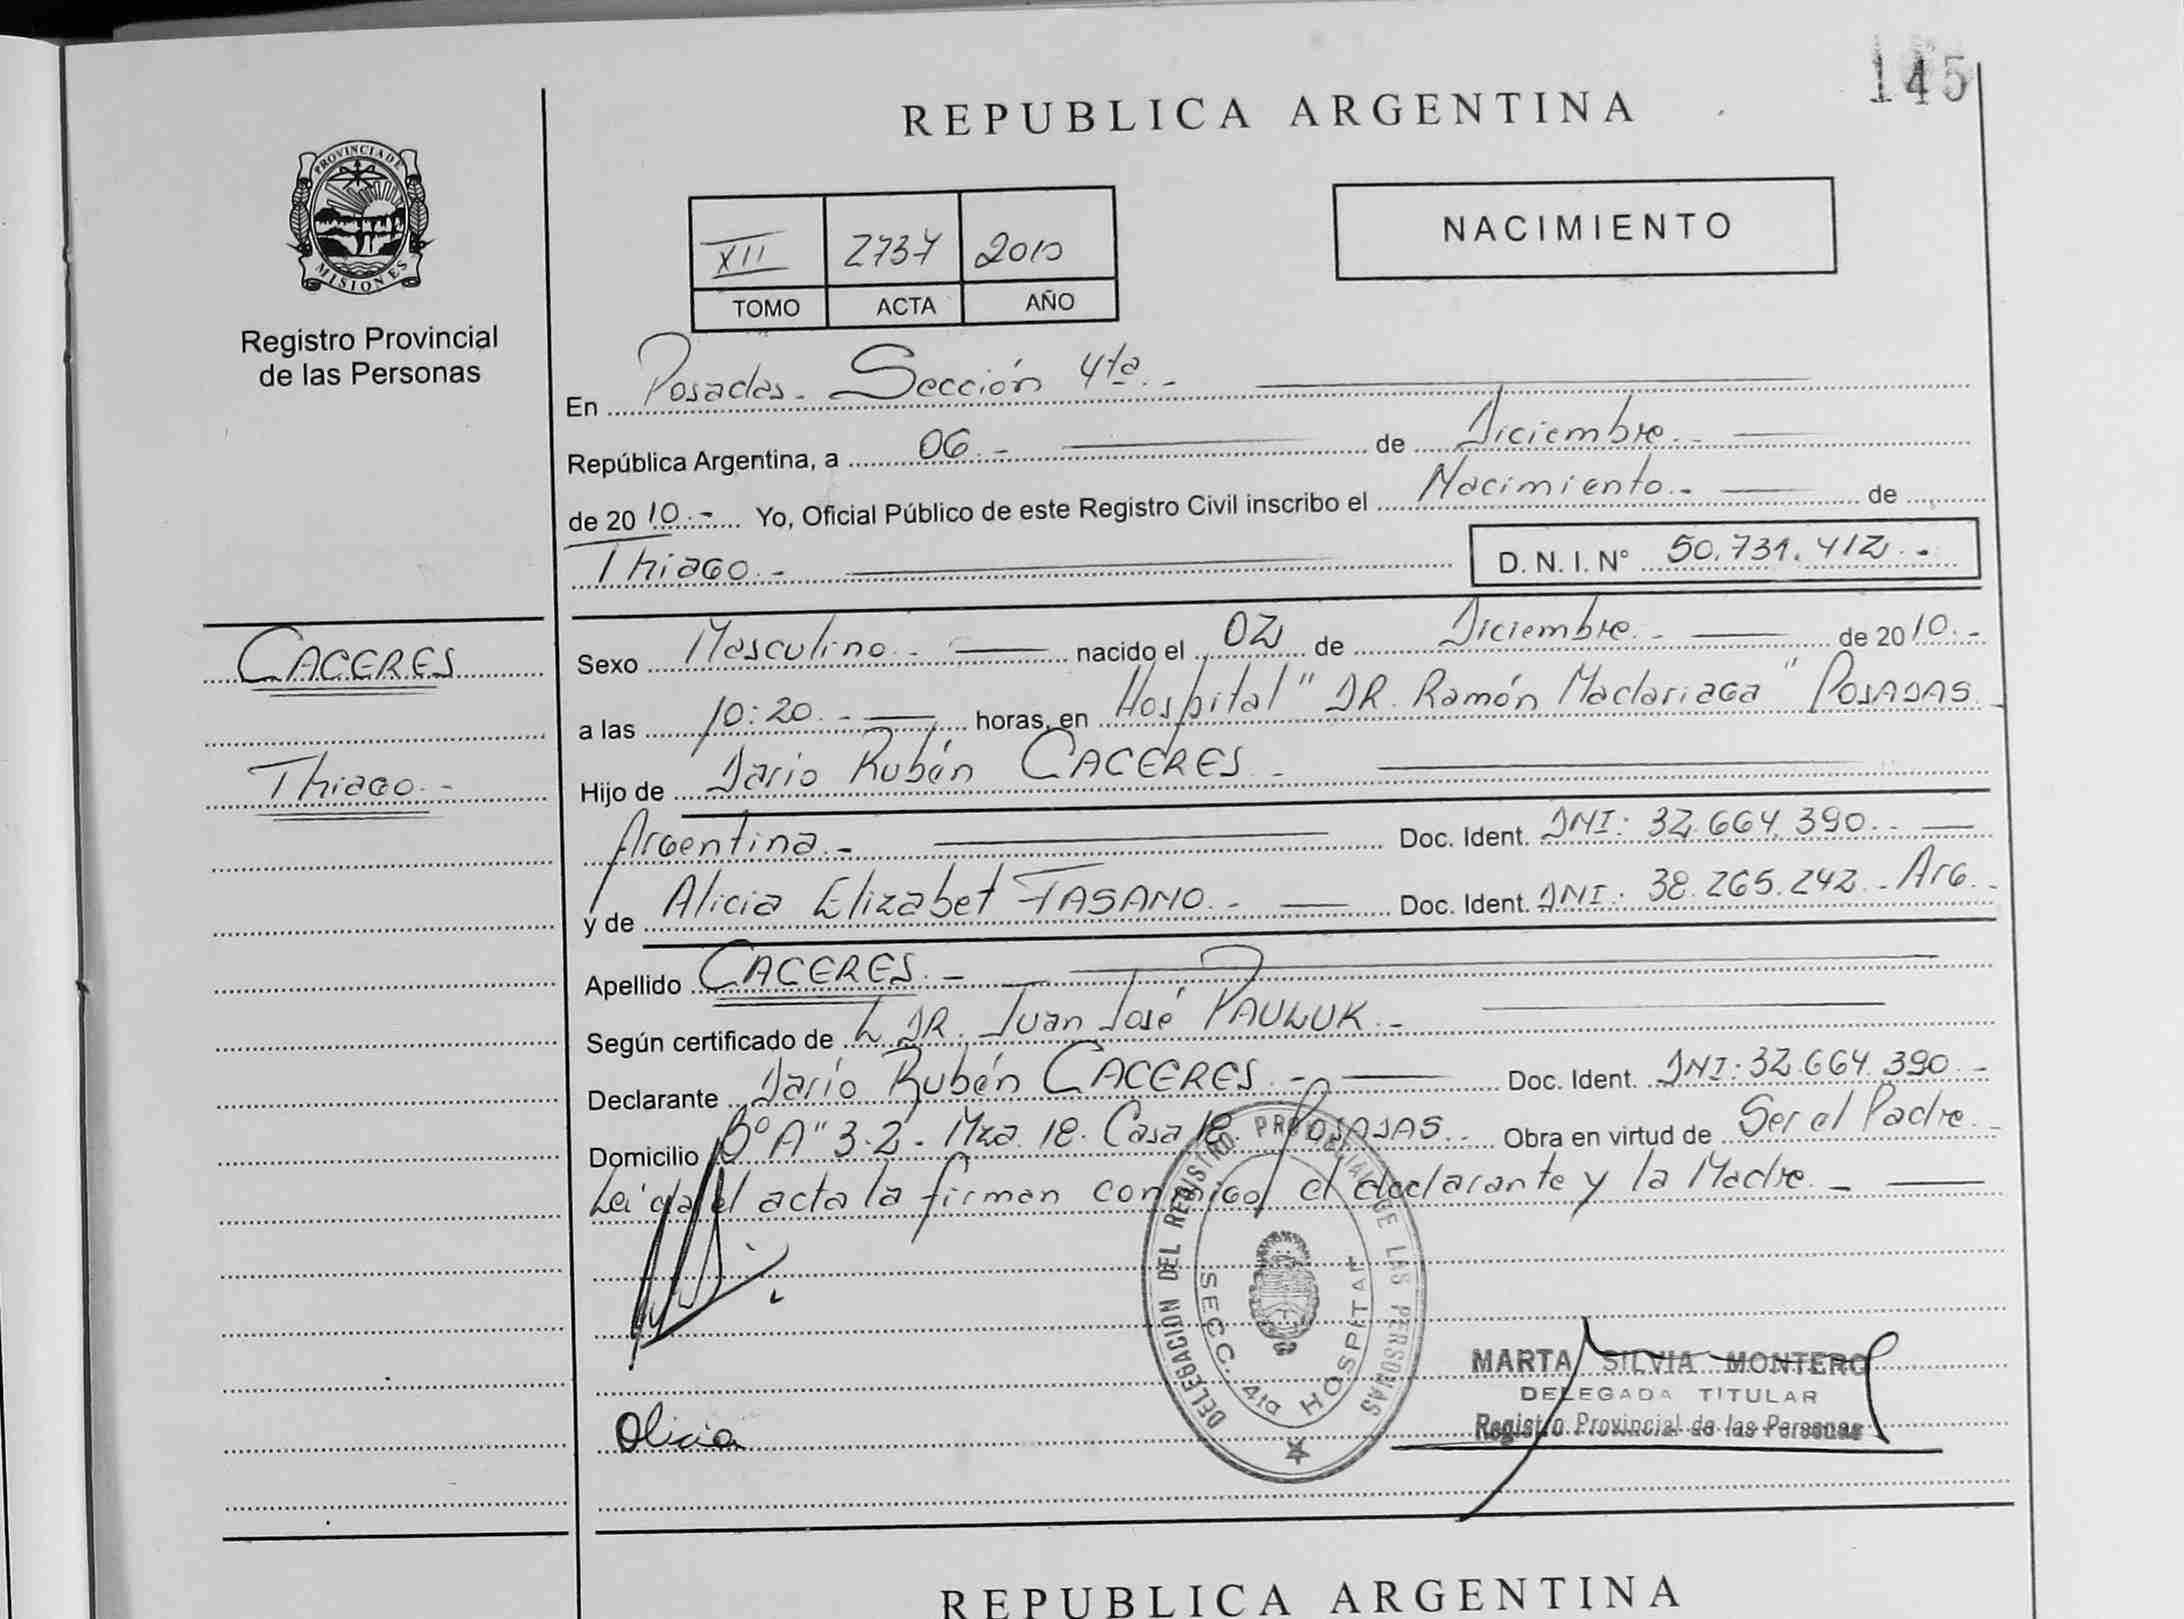 145
REPUBLICA ARGENTINA
PROVINCIA DE
MISIONES
Registro Provincial
de las Personas
XII 2737 2010
TOMO ACTA AÑO
NACIMIENTO
En Posadas - Sección 4ta. -
República Argentina, a 06. - de Diciembre. -
de 20 10. - Yo, Oficial Público de este Registro Civil inscribo el Nacimiento. - de
Thiago. - D. N. I. N° 50.731.412. -
CACERES
Thiago. -
Sexo Masculino. - nacido el 02 de Diciembre. - de 20 10. -
a las 10:20. - horas, en Hospital "DR. Ramón Madariaga" POSADAS.
Hijo de Dario Rubén CACERES -
Argentina. - Doc. Ident. DNI: 32.664.390. -
y de Alicia Elizabet FASANO. - Doc. Ident. DNI: 38.265.242. - Arg. -
Apellido CACERES. -
Según certificado de DR. Juan José PAULUK. -
Declarante Darío Rubén CACERES. - Doc. Ident. DNI: 32.664.390. -
Domicilio B° A" 3-2. - Mza. 18. Casa 18. POSADAS. - Obra en virtud de Ser el Padre. -
Leída el acta la firman conmigo el declarante y la Madre. -
DELEGACION DEL REGISTRO PROVINCIAL DE LAS PERSONAS
SECC. 4ta HOSPITAL
MARTA SILVIA MONTERO
DELEGADA TITULAR
Registro Provincial de las Personas
Alicia
REPUBLICA ARGENTINA